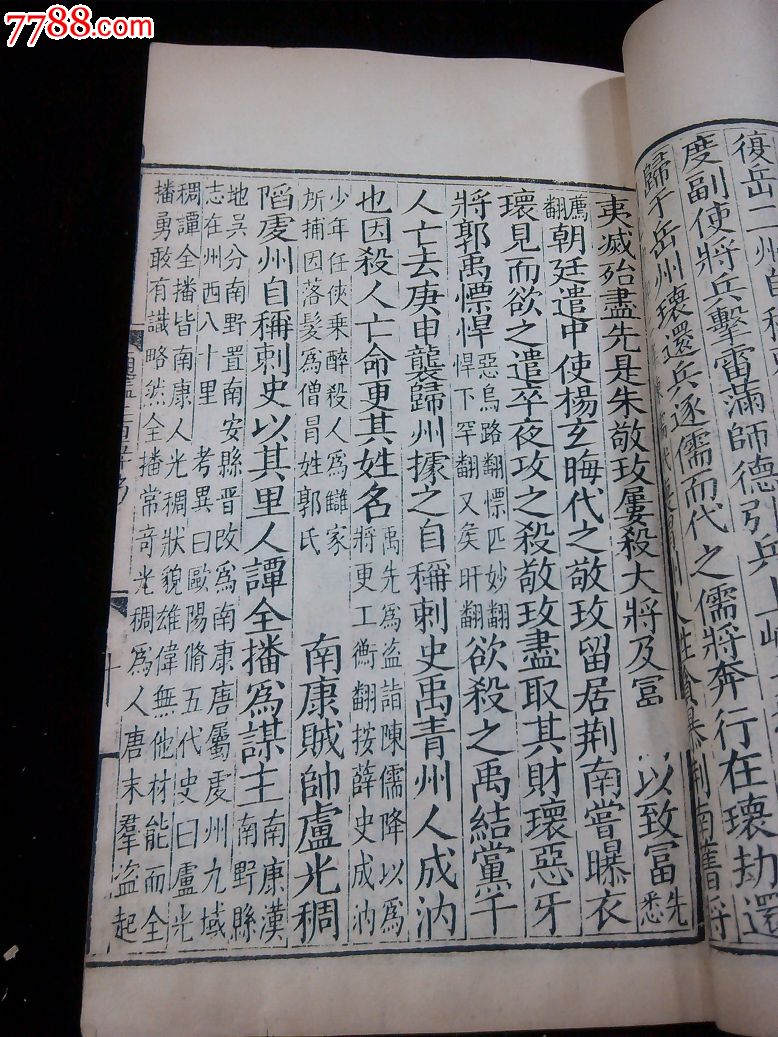 7788.com
復岳二州自
度副使將兵擊雷滿師德引兵上峽
歸于岳州瓌還兵逐儒而代之儒將奔行在瓌劫還
夷滅殆盡先是朱敬玫屢殺大將及富 以致富先悉
薦翻朝廷遣中使楊玄晦代之敬玫留居荆南嘗曝衣
瓌見而欲之遣卒夜攻之殺敬玫盡取其財瓌惡牙
將郭禹慓悍惡烏路翻慓匹妙翻悍下罕翻又矦旰翻欲殺之禹結黨千
人亡去庚申襲歸州據之自稱刺史禹青州人成汭
也因殺人亡命更其姓名禹先爲盗詣陳儒降以爲將更工衡翻按薛史成汭
少年任俠乘醉殺人爲讎家所捕因落髮爲僧冒姓郭氏 南康賊帥盧光稠
陷虔州自稱刺史以其里人譚全播爲謀主南康漢南野縣
地吳分南野置南安縣晉改爲南康唐屬虔州九域
志在州西八十里 考異曰歐陽脩五代史曰盧光
稠譚全播皆南康人光稠狀貌雄偉無他材能而全
播勇敢有識略然全播常奇光稠爲人唐末羣盗起